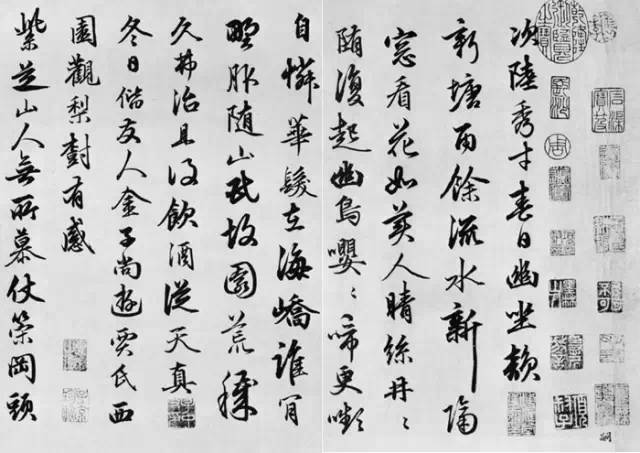 次陸秀才春日幽坐韻
新塘雨餘流水新隔
窓看花如美人晴絲冉〻
堕復起幽鳥嚶〻啼更嚬
自憐華髮在海嶠誰肎
野服随山民故園荒穢
久弗治且須飲酒從天真
冬日偕友人金子尚遊賈氏西
園觀梨樹有感
紫芝山人無所慕仗策岡頭